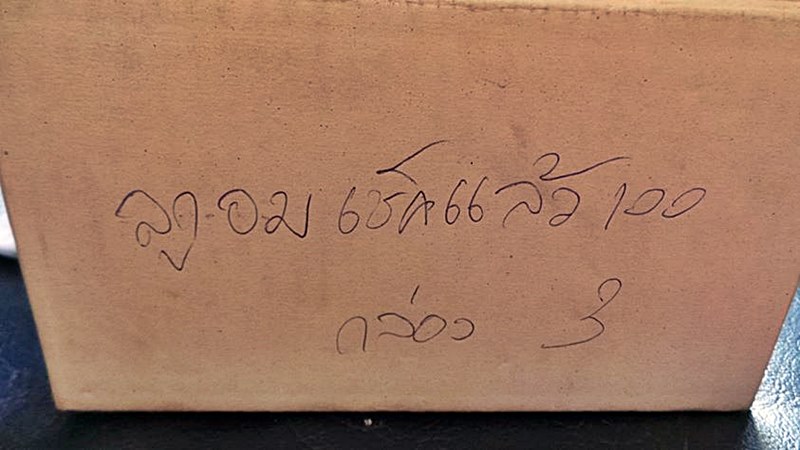 ลูกอม เช็คแล้ว 100
กล่อง 3